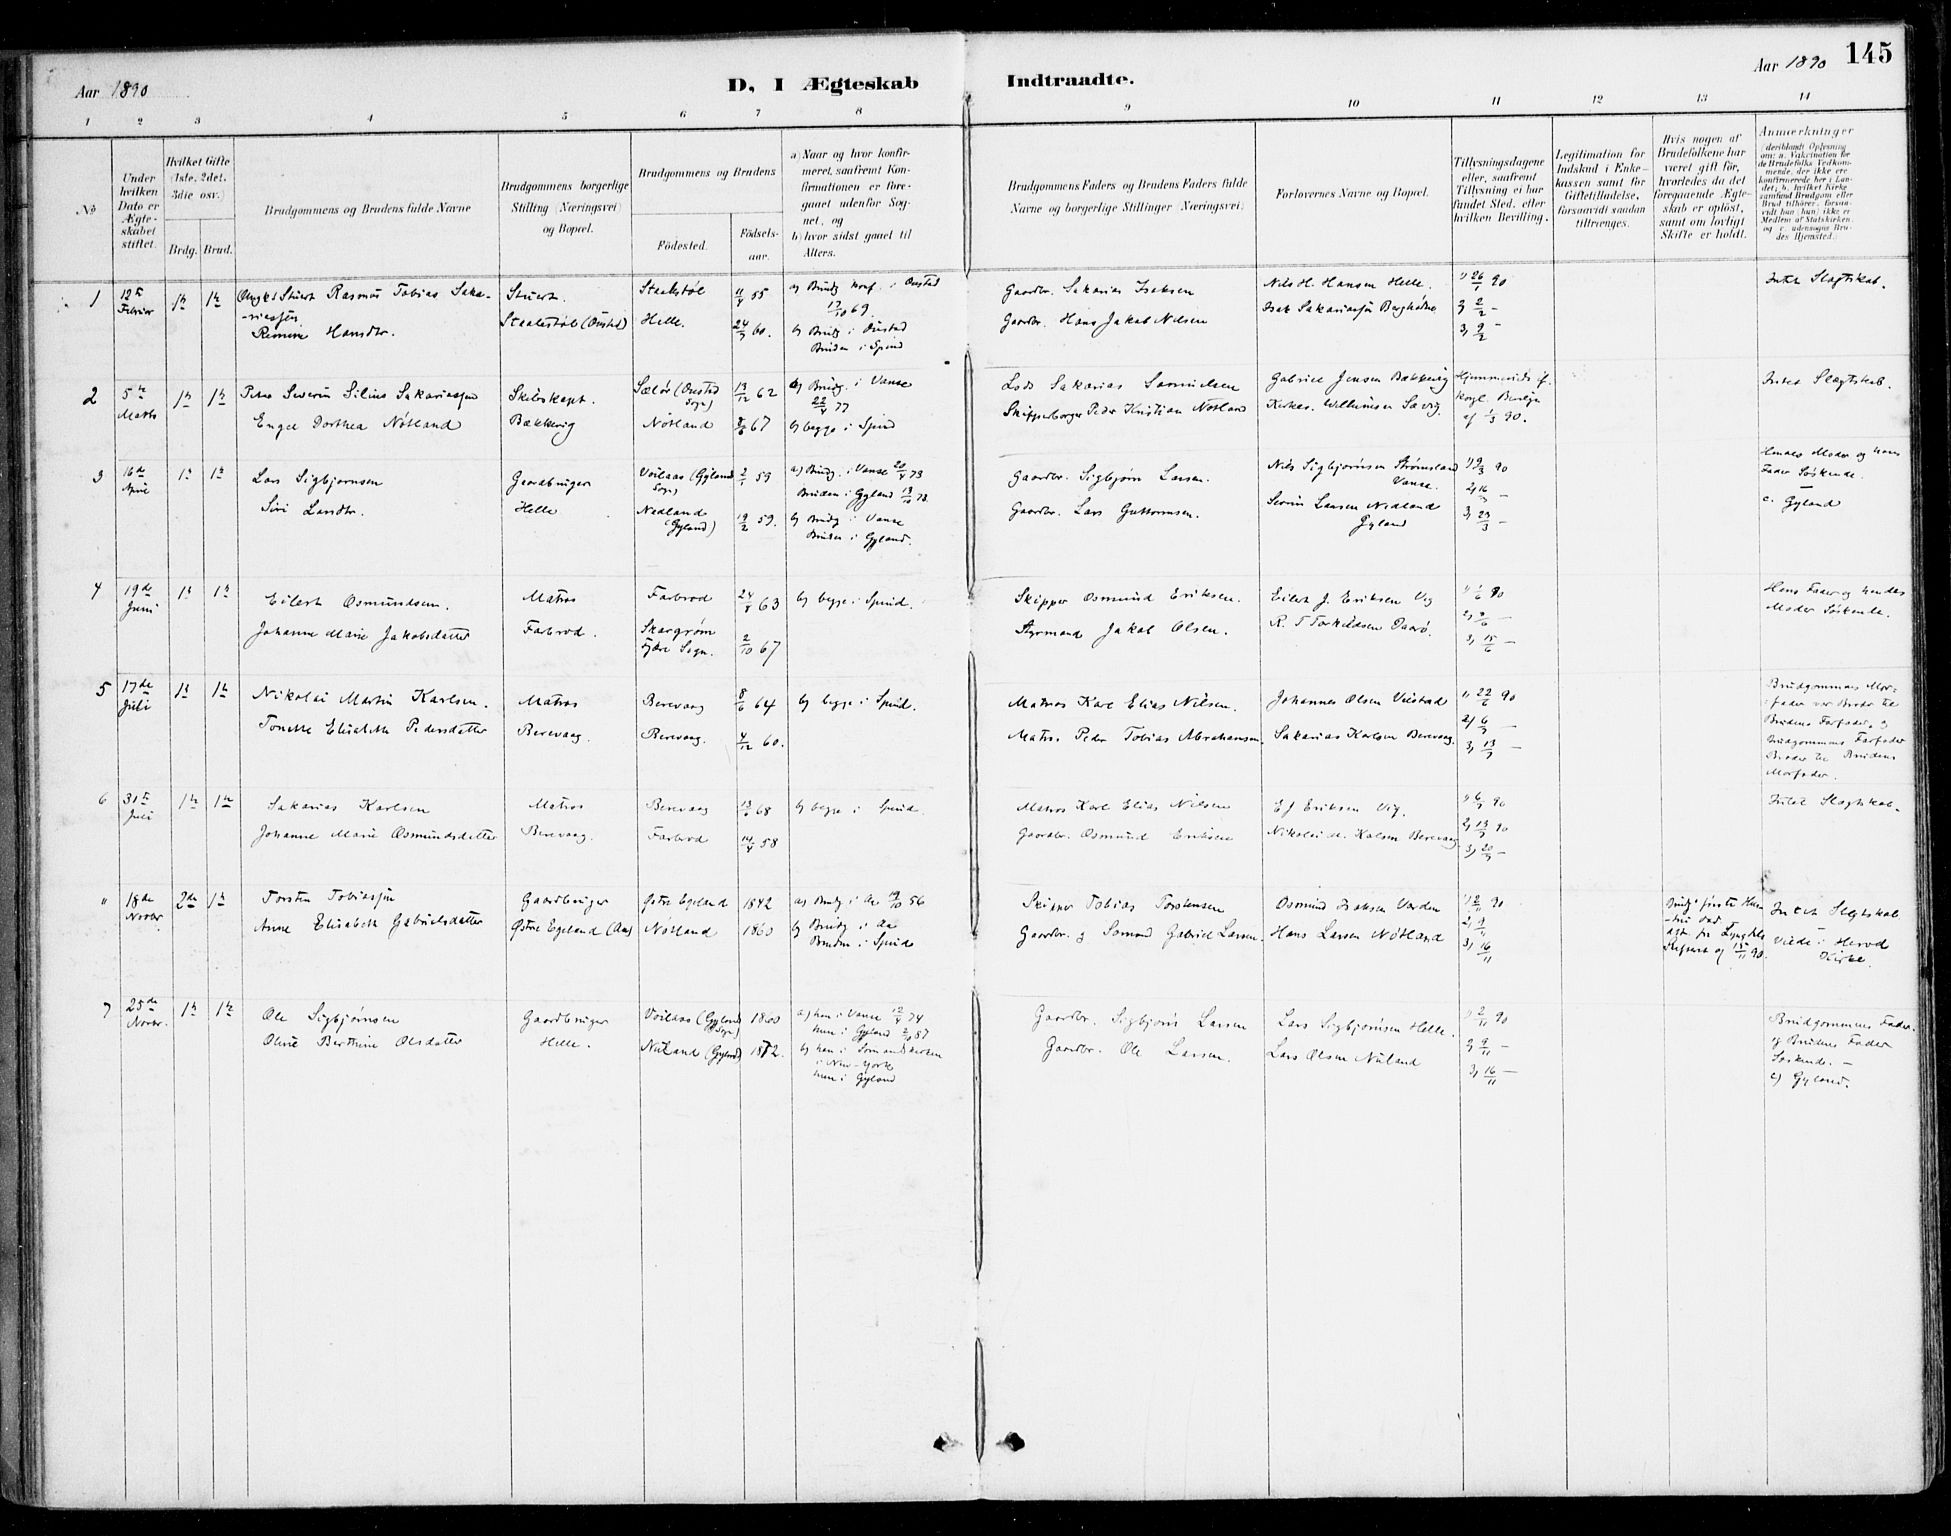 Aar 1890
D, I Ægteskab Indtraadte.
Aar 1890 145
1 2 3 4 5 6 7 8 9 10 11 12 13 14
No
Under hvilken Dato er Ægteskabet stiftet.
Hvilket Gifte (1ste, 2det, 3die osv.)
Brdg. Brud.
Brudgommens og Brudens fulde Navne
Brudgommens borgerlige Stilling (Næringsvei) og Bopæl.
Brudgommens og Brudens
Fødested. Fødselsaar.
a) Naar og hvor konfirmeret, saafremt Konfirmationen er foregaaet udenfor Sognet, og
b) hvor sidst gaaet til Alters.
Brudgommens Faders og Brudens Faders fulde Navne og borgerlige Stillinger (Næringsvei)
Forlovernes Navne og Bopæl.
Tillysningsdagene eller, saafremt Tillysning ei har fundet Sted, efter hvilken Bevilling.
Legitimation for Indskud i Enkekassen samt for Giftetilladelse, forsaavidt saadan tiltrænges.
Hvis nogen af Brudefolkene har været gift før, hvorledes da det foregaaende Ægteskab er opløst, samt om lovligt Skifte er holdt.
Anmærkninger (deriblandt Oplysning om: a. Vakcination for de Brudefolks Vedkommende, der ikke ere konfirmerede her i Landet; b. hvilket Kirkesamfund Brudgom eller Brud tilhører, forsaavidt han (hun) ikke er Medlem af Statskirken, og c. udensogns Brudes Hjemsted.)
1 12te Februar 1ste 1ste Rasmus Tobias Sakariassen Stuert. Staalestøl 11/4 55 a) Brudg. konf. i Ønstad 17/10 69. Gaardbr. Sakarias Isaksen Nils H. Hansen Helle. 1) 26/1 90 Intet Slægtskab.
Remine Hansdtr. Helle. 60. b) Brudg. i Ønstad Gaardbr. Hans Jakob Nilsen Isak Sakariassen 2) 2/2 –
Bruden i Spind 3) 9/2 –
2 5te Marts 1ste 1ste Severin Silius Sakariassen Skibskapt. Sælør 13/12 62 a) Brudg. i Vanse 22/4 77 Lods Sakarias Samuelsen Gabriel Jensen Bækkevig Intet Slægtskab.
Engel Dorthea Nøtland Bækkevig Nøtland 67 b) begge i Spind Skipperborger Peder Kristian Nøtland Sævig. af 1/3 90.
3 16de April 1ste 1ste Lars Sigbjørnsen Gaardbruger Voilaas (Gyland Sogn) 59 a) Brudg. i Vanse 73 Gaardbr. Sigbjørn Larsen. Nils Sigbjørnsen Strømsland Vanse. 1) 9/3 90 Hendes Moder og hans Fader Søskende.
Siri Larsdtr. Helle Nedland (Gyland) 19/2 59. Bruden i Gyland 73 Gaardbr. Lars Guttormsen. Severin Larsen Nedland Gyland 2) 16/3 – c. Gyland
b) Brudg. i Vanse 3) 23/3 –
Bruden i Gyland.
4 19de Juni 1ste 1ste Eilert Osmundsen. Matros Farbrod 24/4 63 b) begge i Spind. Skipper Osmund Eriksen. Eilert J. Eriksen Vig 1) 1/6 90 Hans Fader og hendes Moder Søskende.
Johanne Marie Jakobsdatter Farbrod. Fjære Sogn. 2/10 67 Styrmand Jakob Olsen. 3) 15/6 –
5 17de Juli 1ste 1ste Nikolai Martin Karlsen. Matros Berevaag 8/6 64 b) begge i Spind. Matros Karl Elias Nilsen. Johannes Olsen 1) 22/6 90 Brudgommens Morfader var Broder til Brudens Farfader, og
Tonette Elisabeth Pedersdatter Berevaag. Berevaag. 4/12 60. Matr. Peder Tobias Abrahamsen. Sakarias Karlsen Berevaag. 2) 6/7 – Brudgommens Farfader Broder til Brudens Morfader.
3) 13/7 –
6 31te Juli 1ste 1ste Sakarias Karlsen Matros Berevaag 68 b) begge i Spind. Matros Karl Elias Nilsen E J Eriksen Vig. 1) 6/7 90 Intet Slægtskab.
Johanne Marie Osmundsdatter Berevaag. Farbrod 14/4 58 Gaardbr. Osmund Eriksen Nikolai M. Karlsen Berevaag 2) 13/7 90
3) 20/7 –
" 18de Novbr. 2den 1ste Torsten Tobiassen Gaardbruger Østre Egeland 1842 a) Brudg. i Aa 19/10 56 Skipper Tobias Torstensen Osmund Isaksen Varden 1) 2/11 90 Intet Slægtskab
Anne Elisabeth Gabrielsdatter Østre Egeland (Aa) Nøtland 1860 b) Brudg. i Aa Gaardbr. og Sømand Gabriel Larsen. Hans Larsen Nøtland 2) 9/11 Viede i Herad Kirke.
Bruden i Spind 3) 16/11
7 25de Novbr. 1ste 1ste Ole Sigbjørnsen Gaardbruger Voilaas (Gyland Sogn) 1860 a) han i Vanse 74 Gaardbr. Sigbjørn Larsen Lars Sigbjørnsen Helle. 1) 2/11 90 Brudgommens Fader og Brudens Fader Søskende. –
Oline Berthine Olsdatter Helle. Nuland (Gyland) 1872. hun i Gyland 87 Gaardbr. Ole Larsen. Lars Olsen Nuland 2) 9/11 – c) Gyland.
b) han i Sømandskirken i New-York 3) 16/11 –
hun i Gyland